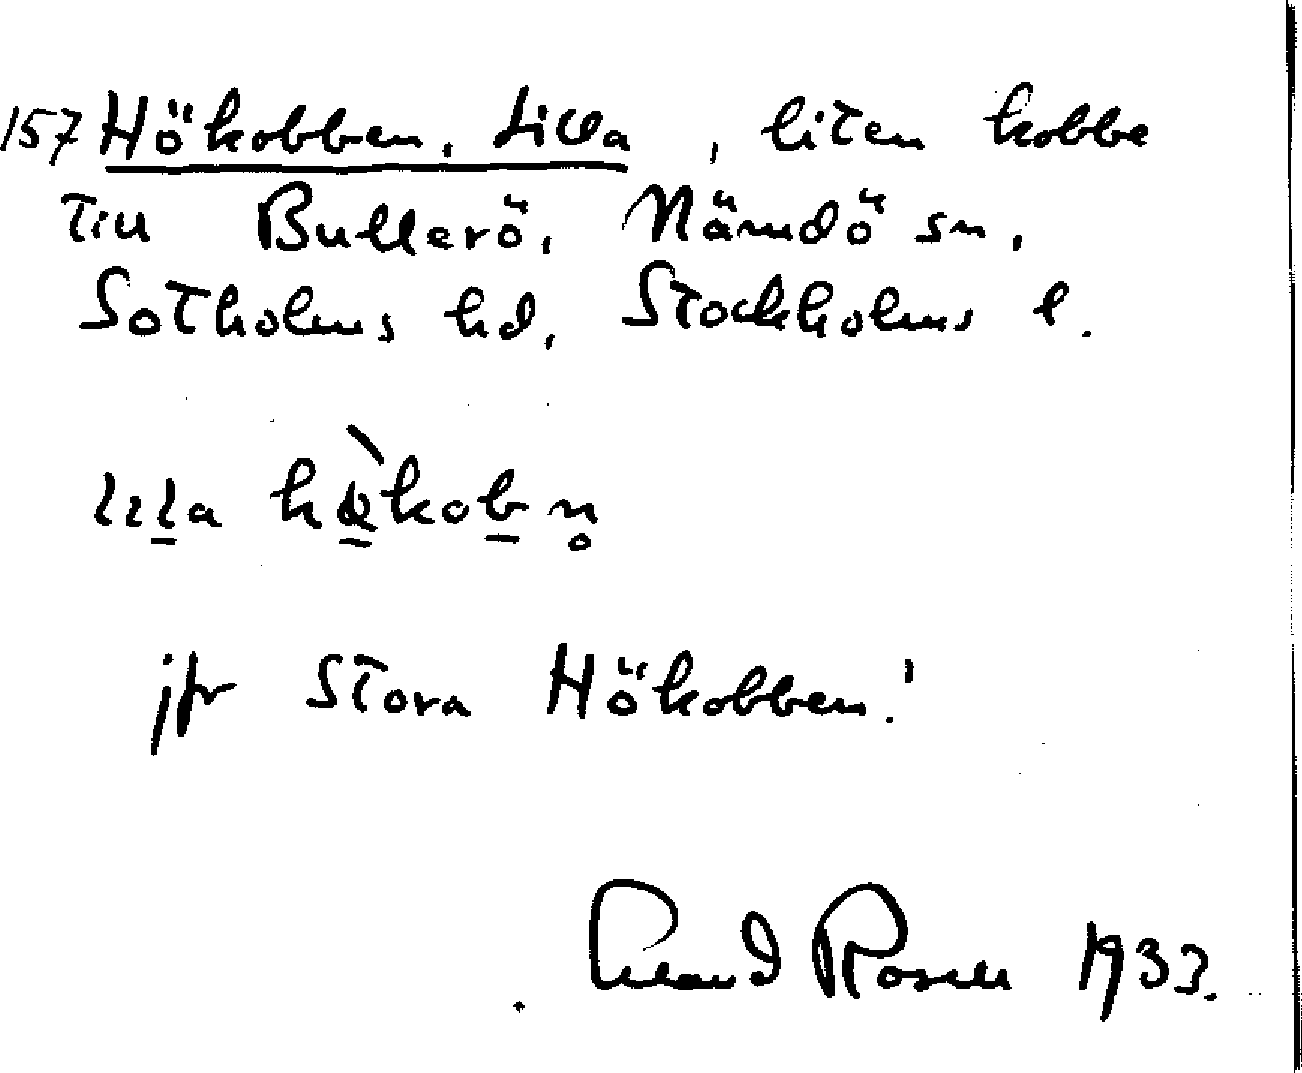 157 Hökobben, Lilla, liten kobbe
till Bullerö, Nämdö sn,
Sotholms hd, Stockholms l.
lɩl̠a
jfr Stora Hökobben!
Erland Rosell 1933.